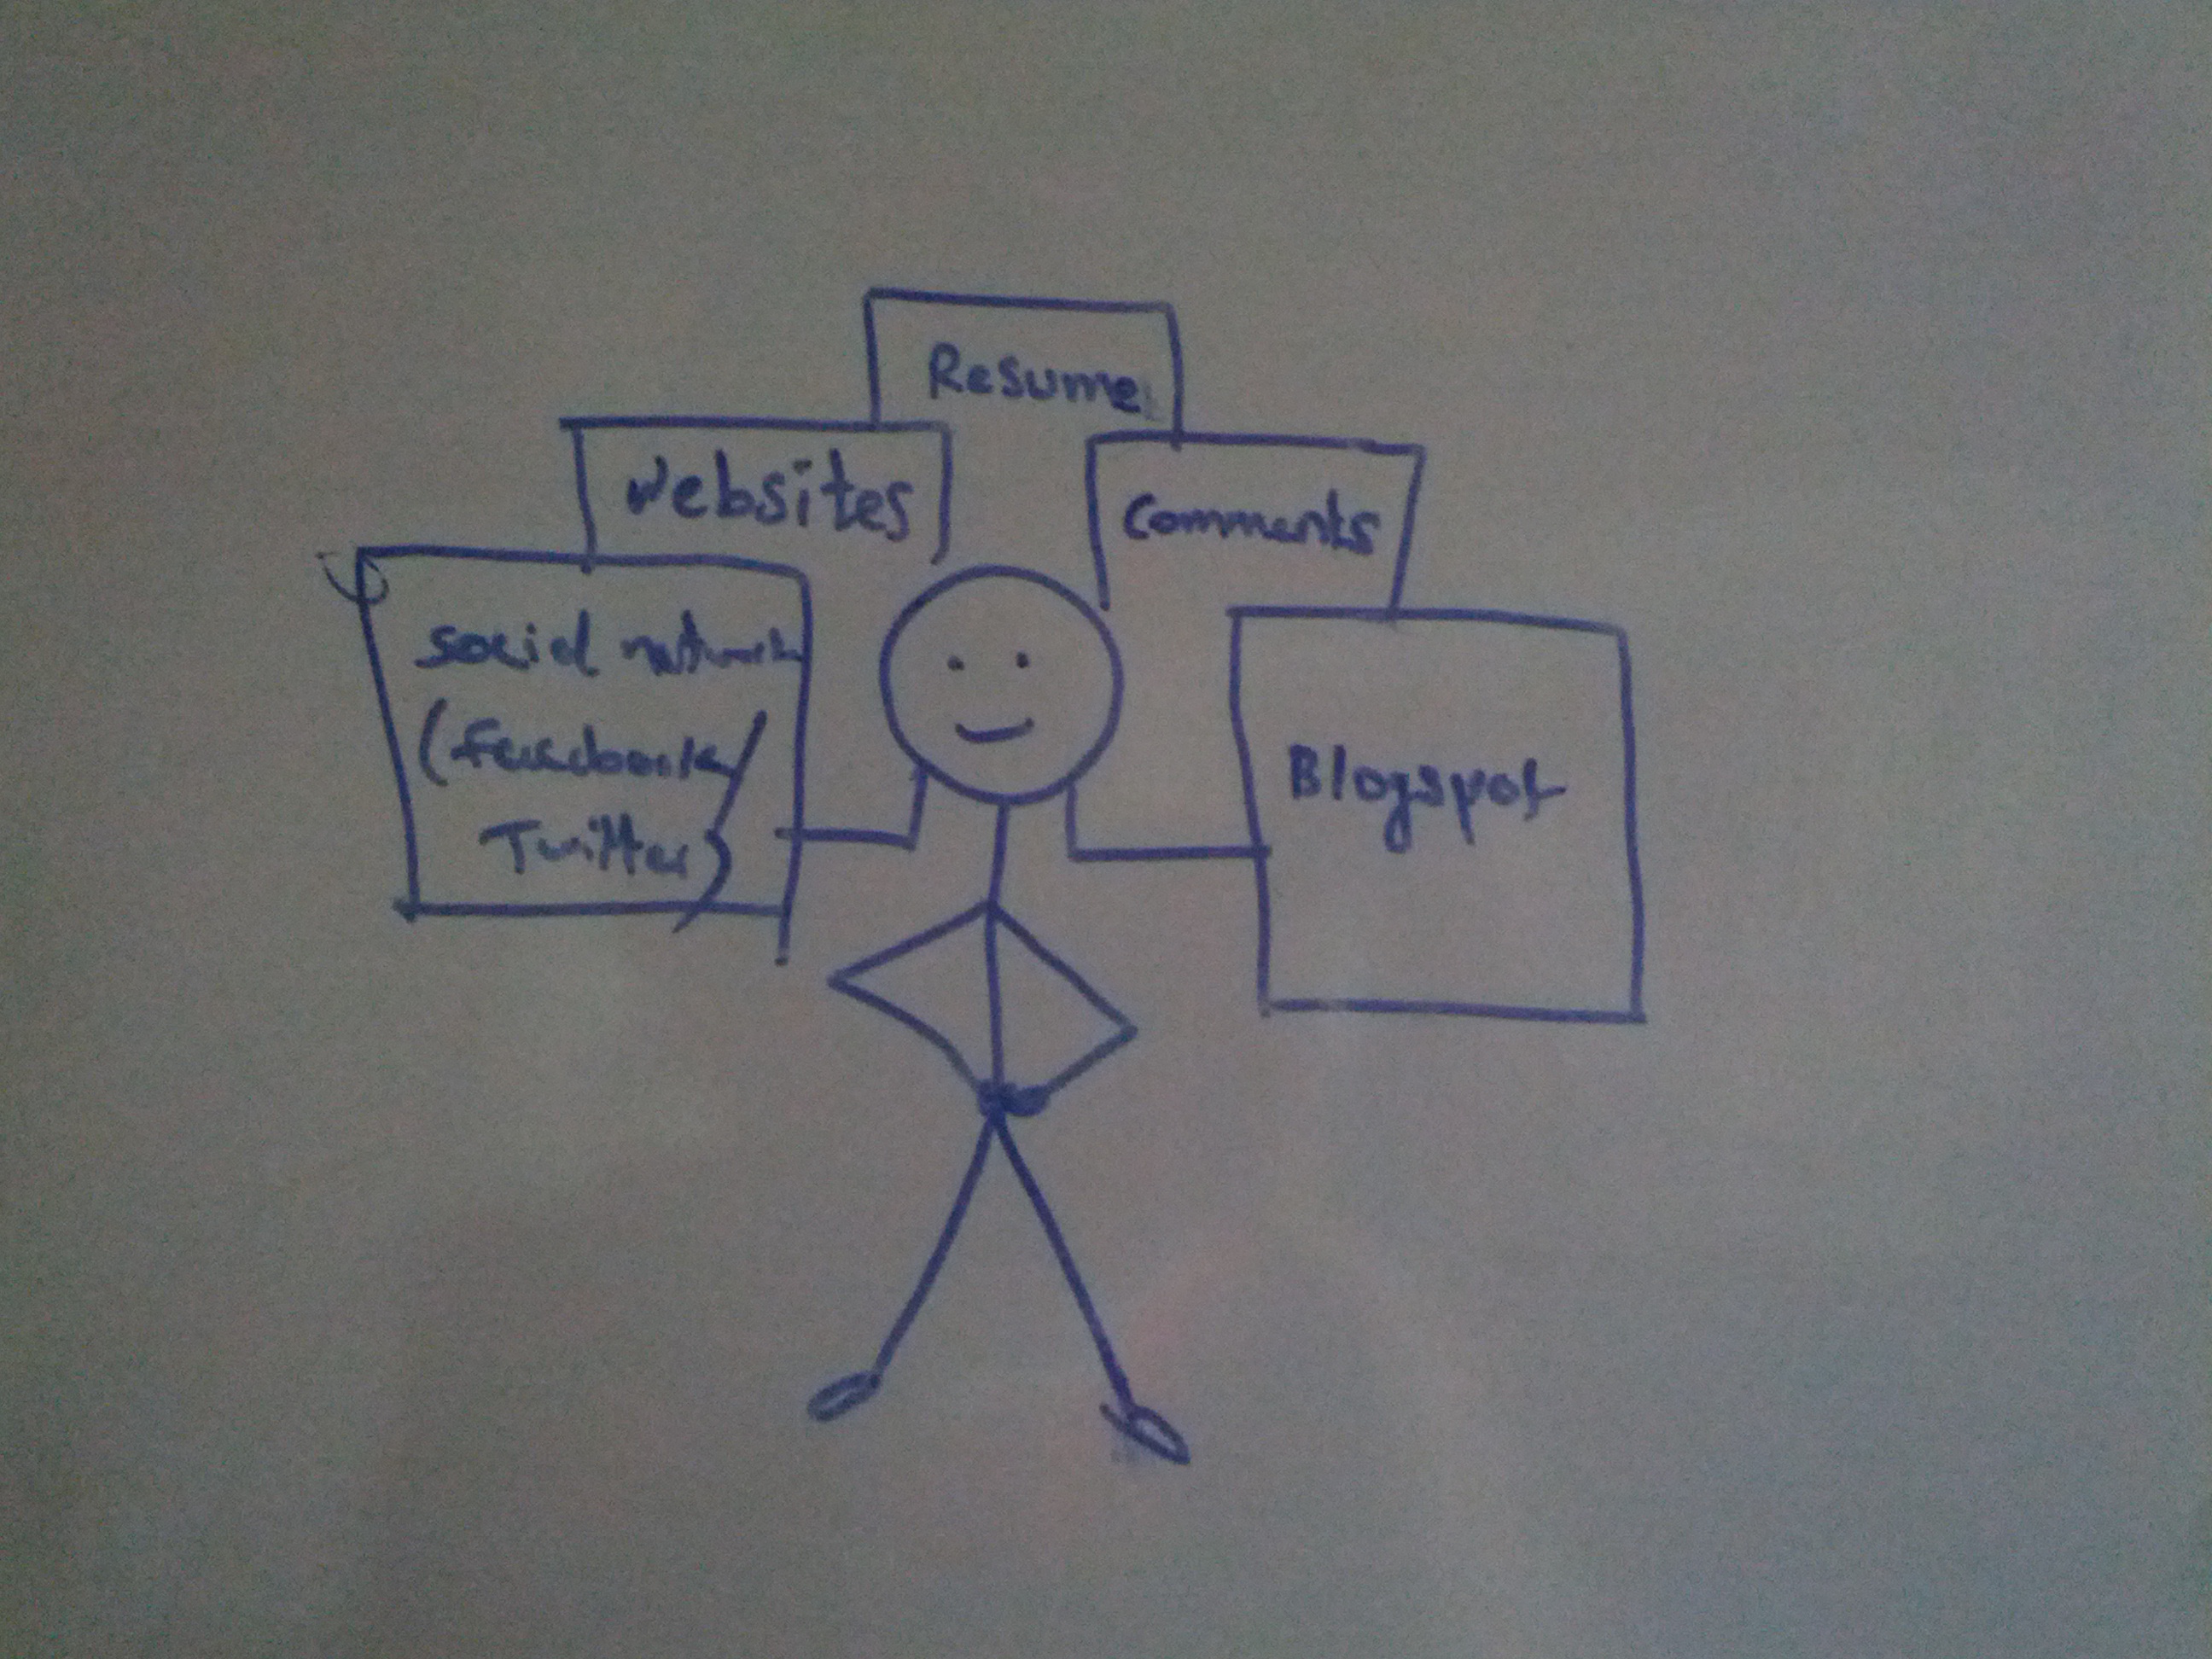 Resume
Websites
Comments
social network
(facebook/
Twitter)
Blogspot